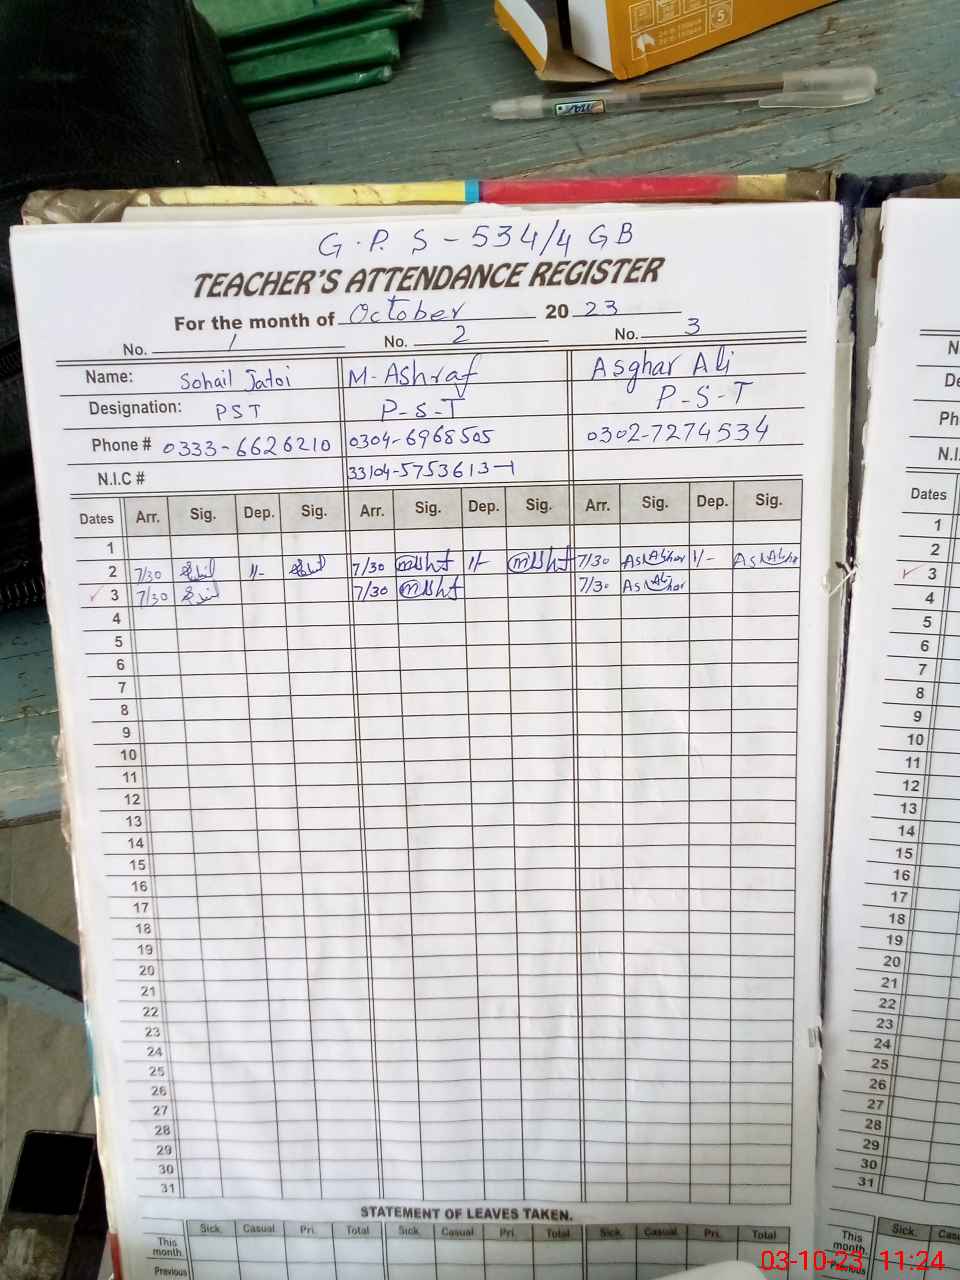 G.P.S-534/4 GB
TEACHER'S ATTENDANCE REGISTER
For the month of October 2023
No. 1 No. 2 No. 3
Name: Sohail Jatoi M-Ashraf Asghar Ali
Designation: PST P-S-T P-S-T
Phone # 0333-6626210 0304-6968505 0302-7274534
N.I.C # 33104-5753613-1
Dates Arr. Sig. Dep. Sig. Arr. Sig. Dep. Sig. Arr. Sig. Dep. Sig.
1
2 7/30 1/- 7/30 1/- 7/30 1/-
3 7/30 7/30 7/30
4
5
6
7
8
9
10
11
12
13
14
15
16
17
18
19
20
21
22
23
24
25
26
27
28
29
30
31
STATEMENT OF LEAVES TAKEN.
Sick. Casual Pri. Total Sick. Casual Pri. Total Sick. Casual Pri. Total
This month.
Previous
N
De
Ph
N.I.
Dates
1
2
3
4
5
6
7
8
9
10
11
12
13
14
15
16
17
18
19
20
21
22
23
24
25
26
27
28
29
30
31
Sick. Cas
This month.
Previous
03-10-23 11:24